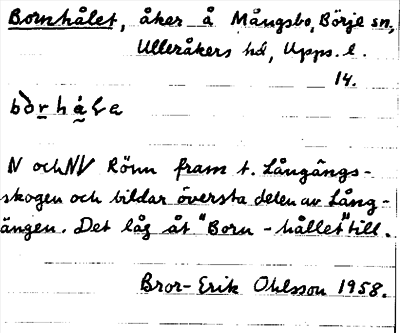 Bornhålet, åker å Mångsbo, Börje sn,
Ulleråkers hd, Upps. l.
14.
N och NV Rönn fram t. Långängs-
skogen och bildar översta delen av Lång-
ängen. Det låg åt "Born-hållet" till.
Bror-Erik Ohlsson 1958.